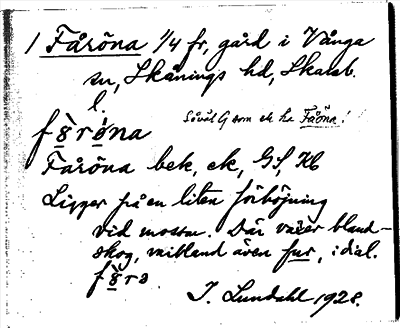 1 Fåröna 1/4 fr, gård i Vånga
sn, Skånings hd, Skarab.
l.
Såväl G som ek ha Fåöna!
f8röna
Faröna bek, ek, GS, Hb
Ligger på en liten förhöjning
vid mossen. Där växer bland-
skog, mibland även fur, i dial.
f8rə
J. Lundahl 1928.